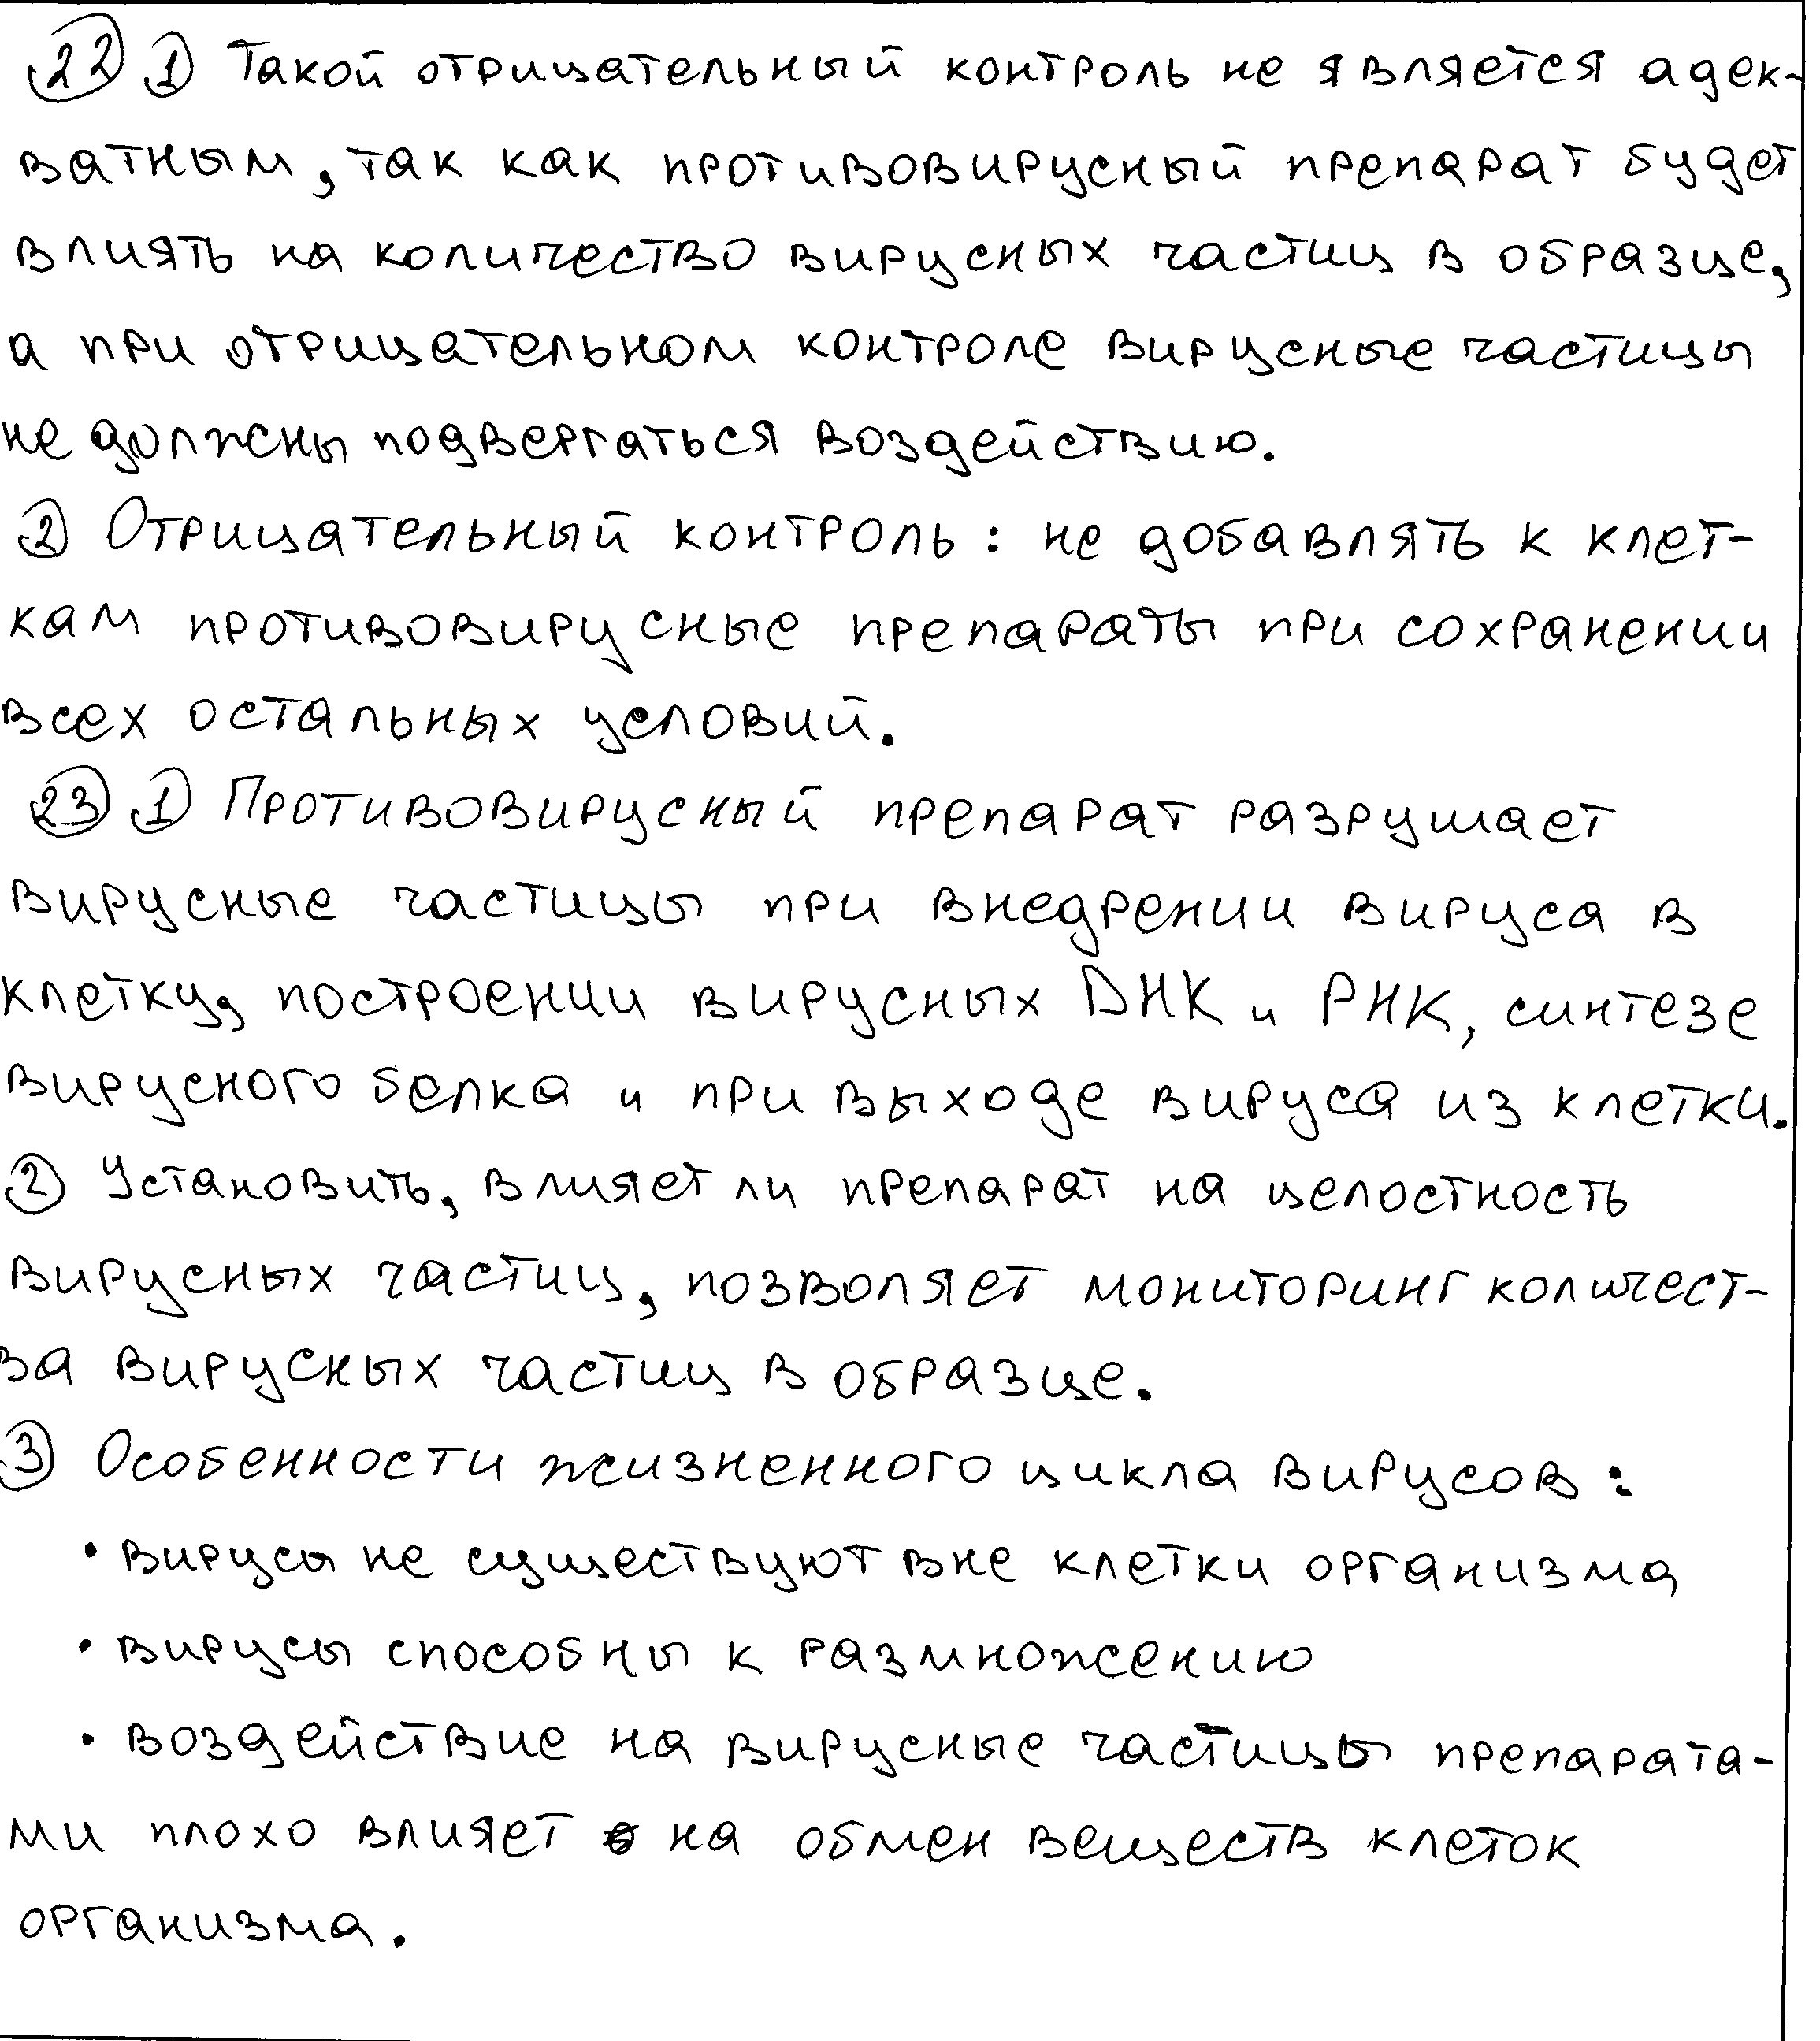 22 1 Такой отрицательный контроль не является адек-
ватным, так как противовирусный препарат будет
влиять на количество вирусных частиц в образце,
а при отрицательном контроле вирусные частицы
не должны подвергаться воздействию.
2 Отрицательный контроль: не добавлять к клет-
кам противовирусные препараты при сохранении
всех остальных условий.
23 1 Противовирусный препарат разрушает
вирусные частицы при внедрении вируса в
клетку, построении вирусных ДНК и РНК, синтезе
вирусного белка и при выходе вируса из клетки.
2 Установить, влияет ли препарат на целостность
вирусных частиц, позволяет мониторинг количест-
ва вирусных частиц в образце.
3 Особенности жизненного цикла вирусов:
• вирусы не существуют вне клетки организма
• вирусы способны к размножению
• воздействие на вирусные частицы препарата-
ми плохо влияет на обмен веществ клеток
организма.